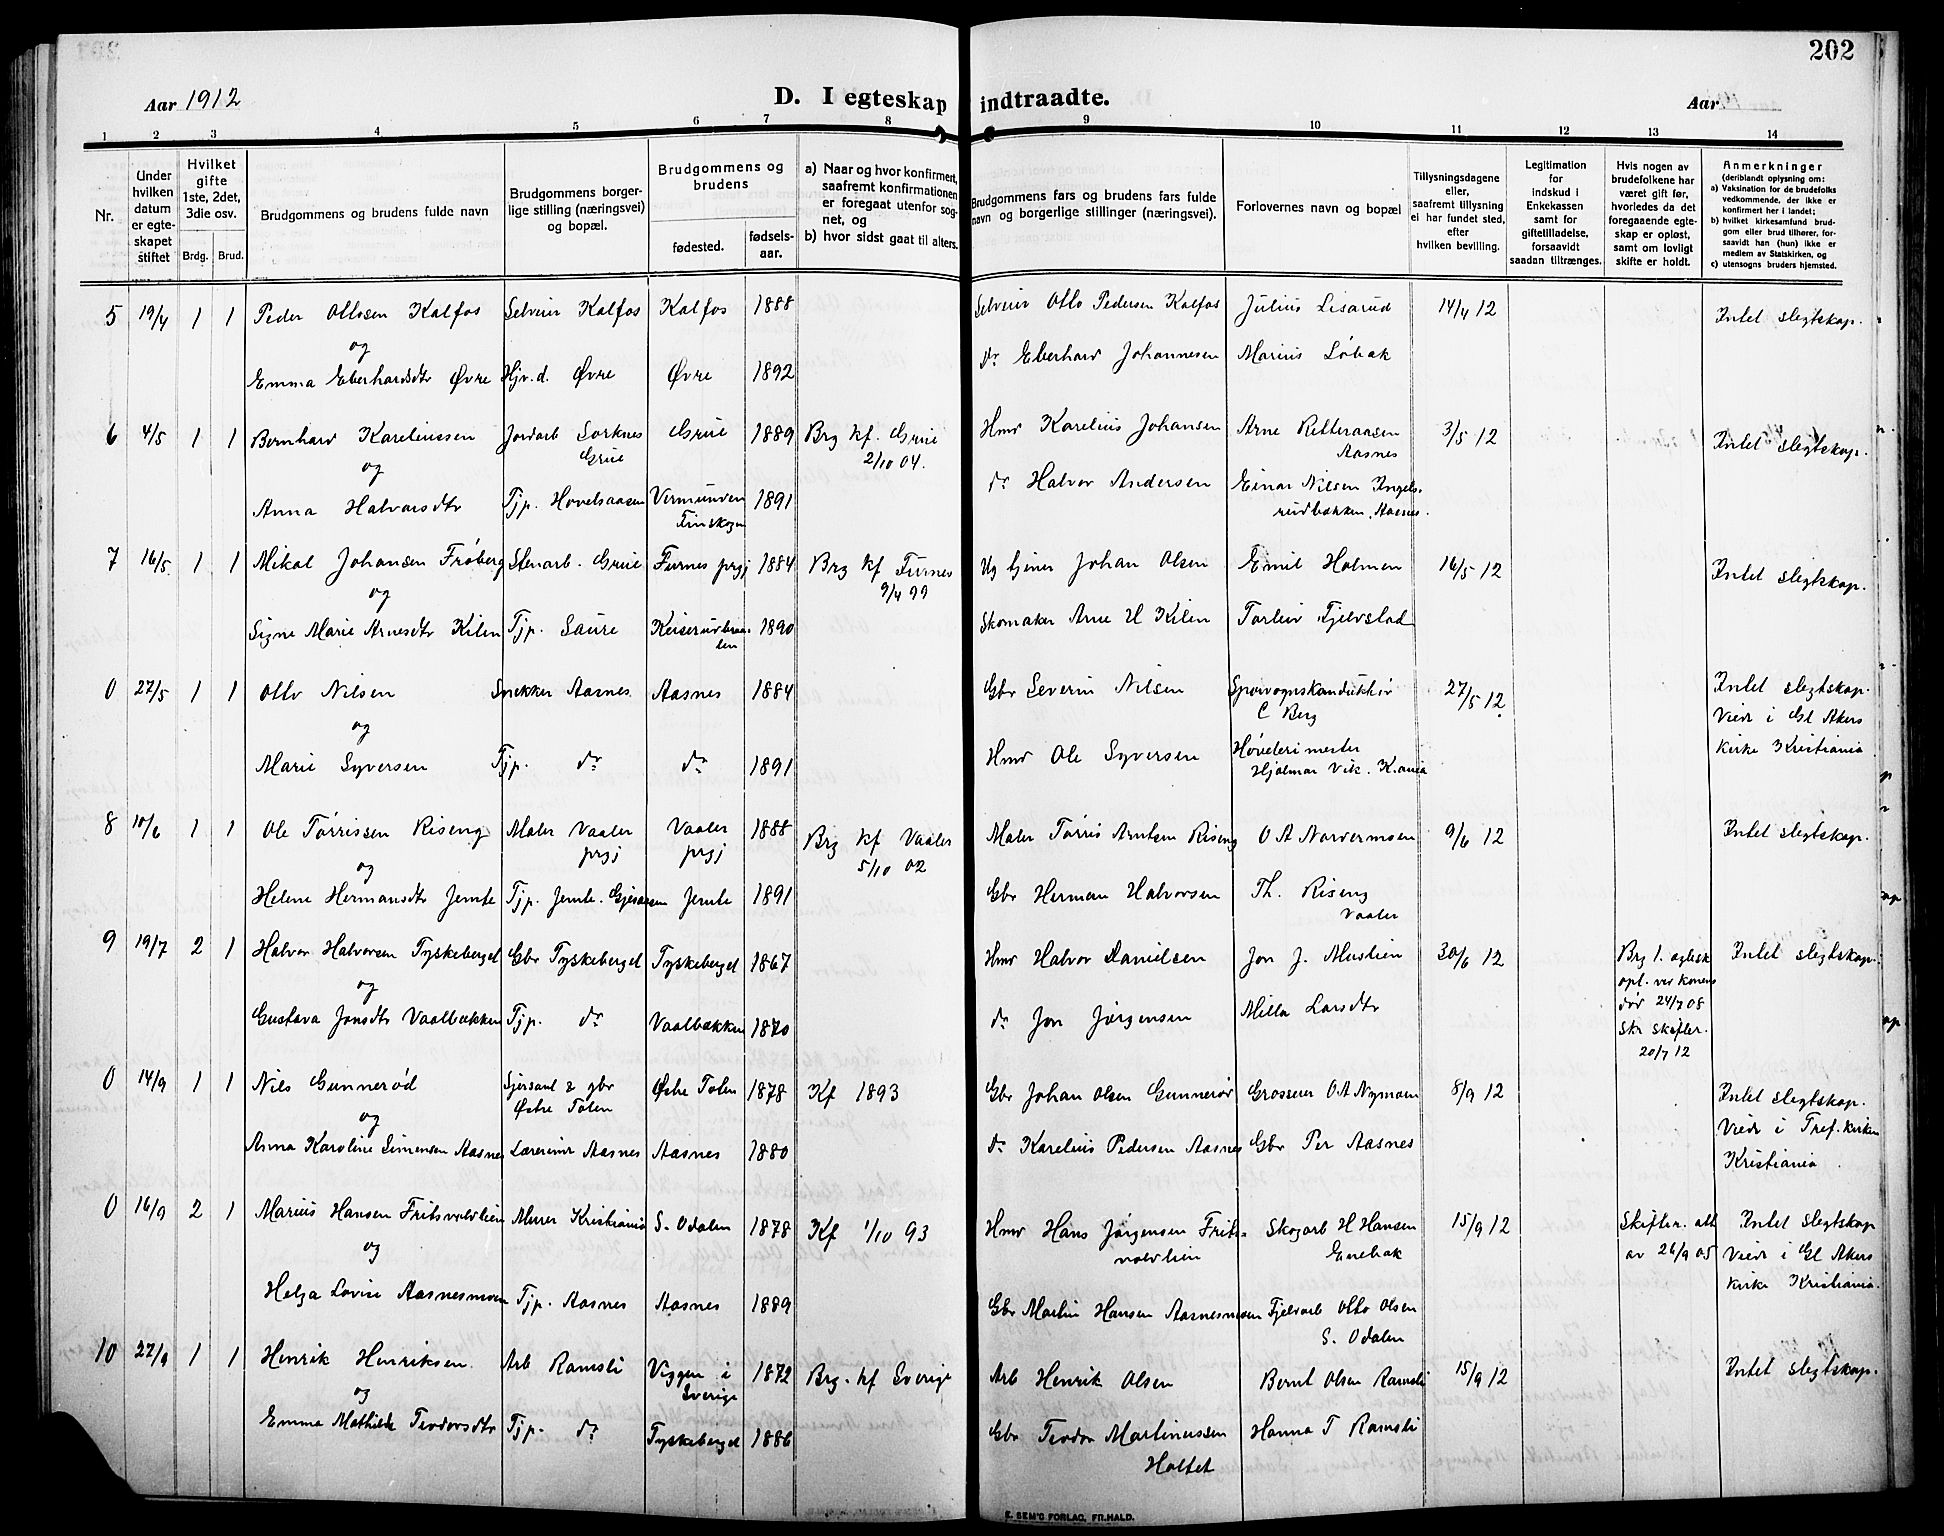 202
Aar 1912
D. I egteskap indtraadte.
Aar
1 2 3 4 5 6 7 8 9 10 11 12 13 14
Nr.
Under hvilken datum er egteskapet stiftet
Hvilket gifte 1ste, 2det, 3die osv.
Brdg. Brud.
Brudgommens og brudens fulde navn
Brudgommens borgerlige stilling (næringsvei) og bopæl.
Brudgommens og brudens
fødested.
fødselsaar.
a) Naar og hvor konfirmert, saafremt konfirmationen er foregaat utenfor sognet, og
b) hvor sidst gaat til alters.
Brudgommens fars og brudens fars fulde navn og borgerlige stillinger (næringsvei).
Forlovernes navn og bopæl
Tillysningsdagene eller, saafremt tillysning ei har fundet sted, efter hvilken bevilling.
Legitimation for indskud i Enkekassen samt for giftetilladelse, forsaavidt saadan tiltrænges.
Hvis nogen av brudefolkene har været gift før, hvorledes da det foregaaende egteskap er opløst, samt om lovligt skifte er holdt.
Anmerkninger
(deriblandt oplysning om:
a) Vaksination for de brudefolks vedkommende, der ikke er konfirmert her i landet;
b) hvilket kirkesamfund brudgom eller brud tilhører, forsaavidt han (hun) ikke er medlem av Statskirken, og
c) utensogns bruders hjemsted.
5 19/4 1 1 Peder Ottosen Kalfos Selveier Kalfos Kalfos 1888 Selveier Otto Pedersen Kalfos Julius Lisarud 14/4 12 Intet slegtskap.
og
Emma Eberhardsdtr Øvre Hjv.d. Øvre Øvre 1892 do Eberhard Johannesen Marius Løbak
6 4/5 1 1 Bernhard Kareliussen Jordarb Sorknes Grue Grue 1889 Brg kf. Grue 2/10 04. Hmd Karelius Johansen Arne Ritteraasen Aasnes 3/5 12 Intet slegtskap.
og
Anna Halvorsdtr Tjp. Hovelsaasen Vermunden Finskogen 1891 do Halvor Andersen Einar Nilsen Ingelsrudbakken, Aasnes.
7 16/5 1 1 Mikal Johansen Frøberg Stenarb. Grue Furnes prgj 1884 Brg kf Furnes 9/4 99 Ug tjener Johan Olsen Emil Holmen 16/5 12 Intet slegtskap.
og
Signe Marie Arnesdtr Kilen Tjp. Saure 1890 Skomaker Arne H Kilen Torleiv Fjelvstad
0 27/5 1 1 Otto Nilsen Snekker Aasnes Aasnes 1884 Gbr Severin Nilsen Sporvognskonduktør C Berg 27/5 12 Intet slegtskap.
Viede i Gl Akers kirke Kristiania
og
Marie Syversen Tjp. do do 1891 Hmd Ole Syversen Høvlerimester Hjalmar Vik. K.ania
8 10/6 1 1 Ole Tørrissen Riseng Maler Vaaler prgj Vaaler prgj 1888 Brg kf Vaaler 5/10 02 Maler Tørris Arntsen Riseng O A Nordermoen 9/6 12 Intet slegtskap.
og
Helene Hermansdtr Jemte Tjp. Jemte. Gjesaasen Jemte 1891 Gbr Herman Halvorsen Th. Riseng Vaaler
9 19/7 2 1 Halvor Halvorsen Tyskeberget Gbr Tyskeberget Tyskeberget 1867 Hmd Halvor Danielsen Jon J. Mustien 30/6 12 Brg 1. egtesk opl. ved konens død 24/7 08 Skr skifter. 20/7 12 Intet slegtskap.
og
Gustava Jonsdtr Vaalbækken Tjp. do Vaalbækken 1870 do Jon Jørgensen Milla Larsdtr
0 14/9 1 1 Nils Gunnerød & gbr Østre Toten Østre Toten 1878 Kf 1893 Gbr Johan Olsen Gunnerød Grosserer O A Nymoen 8/9 12 Intet slegtskap.
Viede i Tref. kirken Kristiania
og
Anna Karoline Simensen Aasnes Lærerinde Aasnes Aasnes 1880 do Karelius Pedersen Aasnes Gbr Per Aasnes
0 16/9 2 1 Marius Hansen Fritsvoldlien Murer Kristiania S. Odalen 1878 Kf 1/10 93 Hmd Hans Jørgensen Fritsvoldlien Skogarb H Hansen Enebak 15/9 12 Skifter. att av 26/9 05 Intet slegtskap
Viede i Gl Akers kirke Kristiania.
og
Helga Lovise Aasnesmoen Tjp. Aasnes Aasnes 1889 Gbr Martin Hansen Aasnesmoen Fjelarb Otto Olsen S. Odalen
10 27/9 1 1 Henrik Henriksen. Arb Ramsli Viggen i Sverige 1872 Brg. kf Sverige Arb Henrik Olsen Bernt Olsen Ramsli 15/9 12 Intet slegtskap.
og
Emma Mathilde Teodorsdtr Tjp. do Tyskeberget 1886 Gbr Teodor Martinussen Holtet Hanna T Ramsli
E. SEM'S FORLAG, FR.HALD.